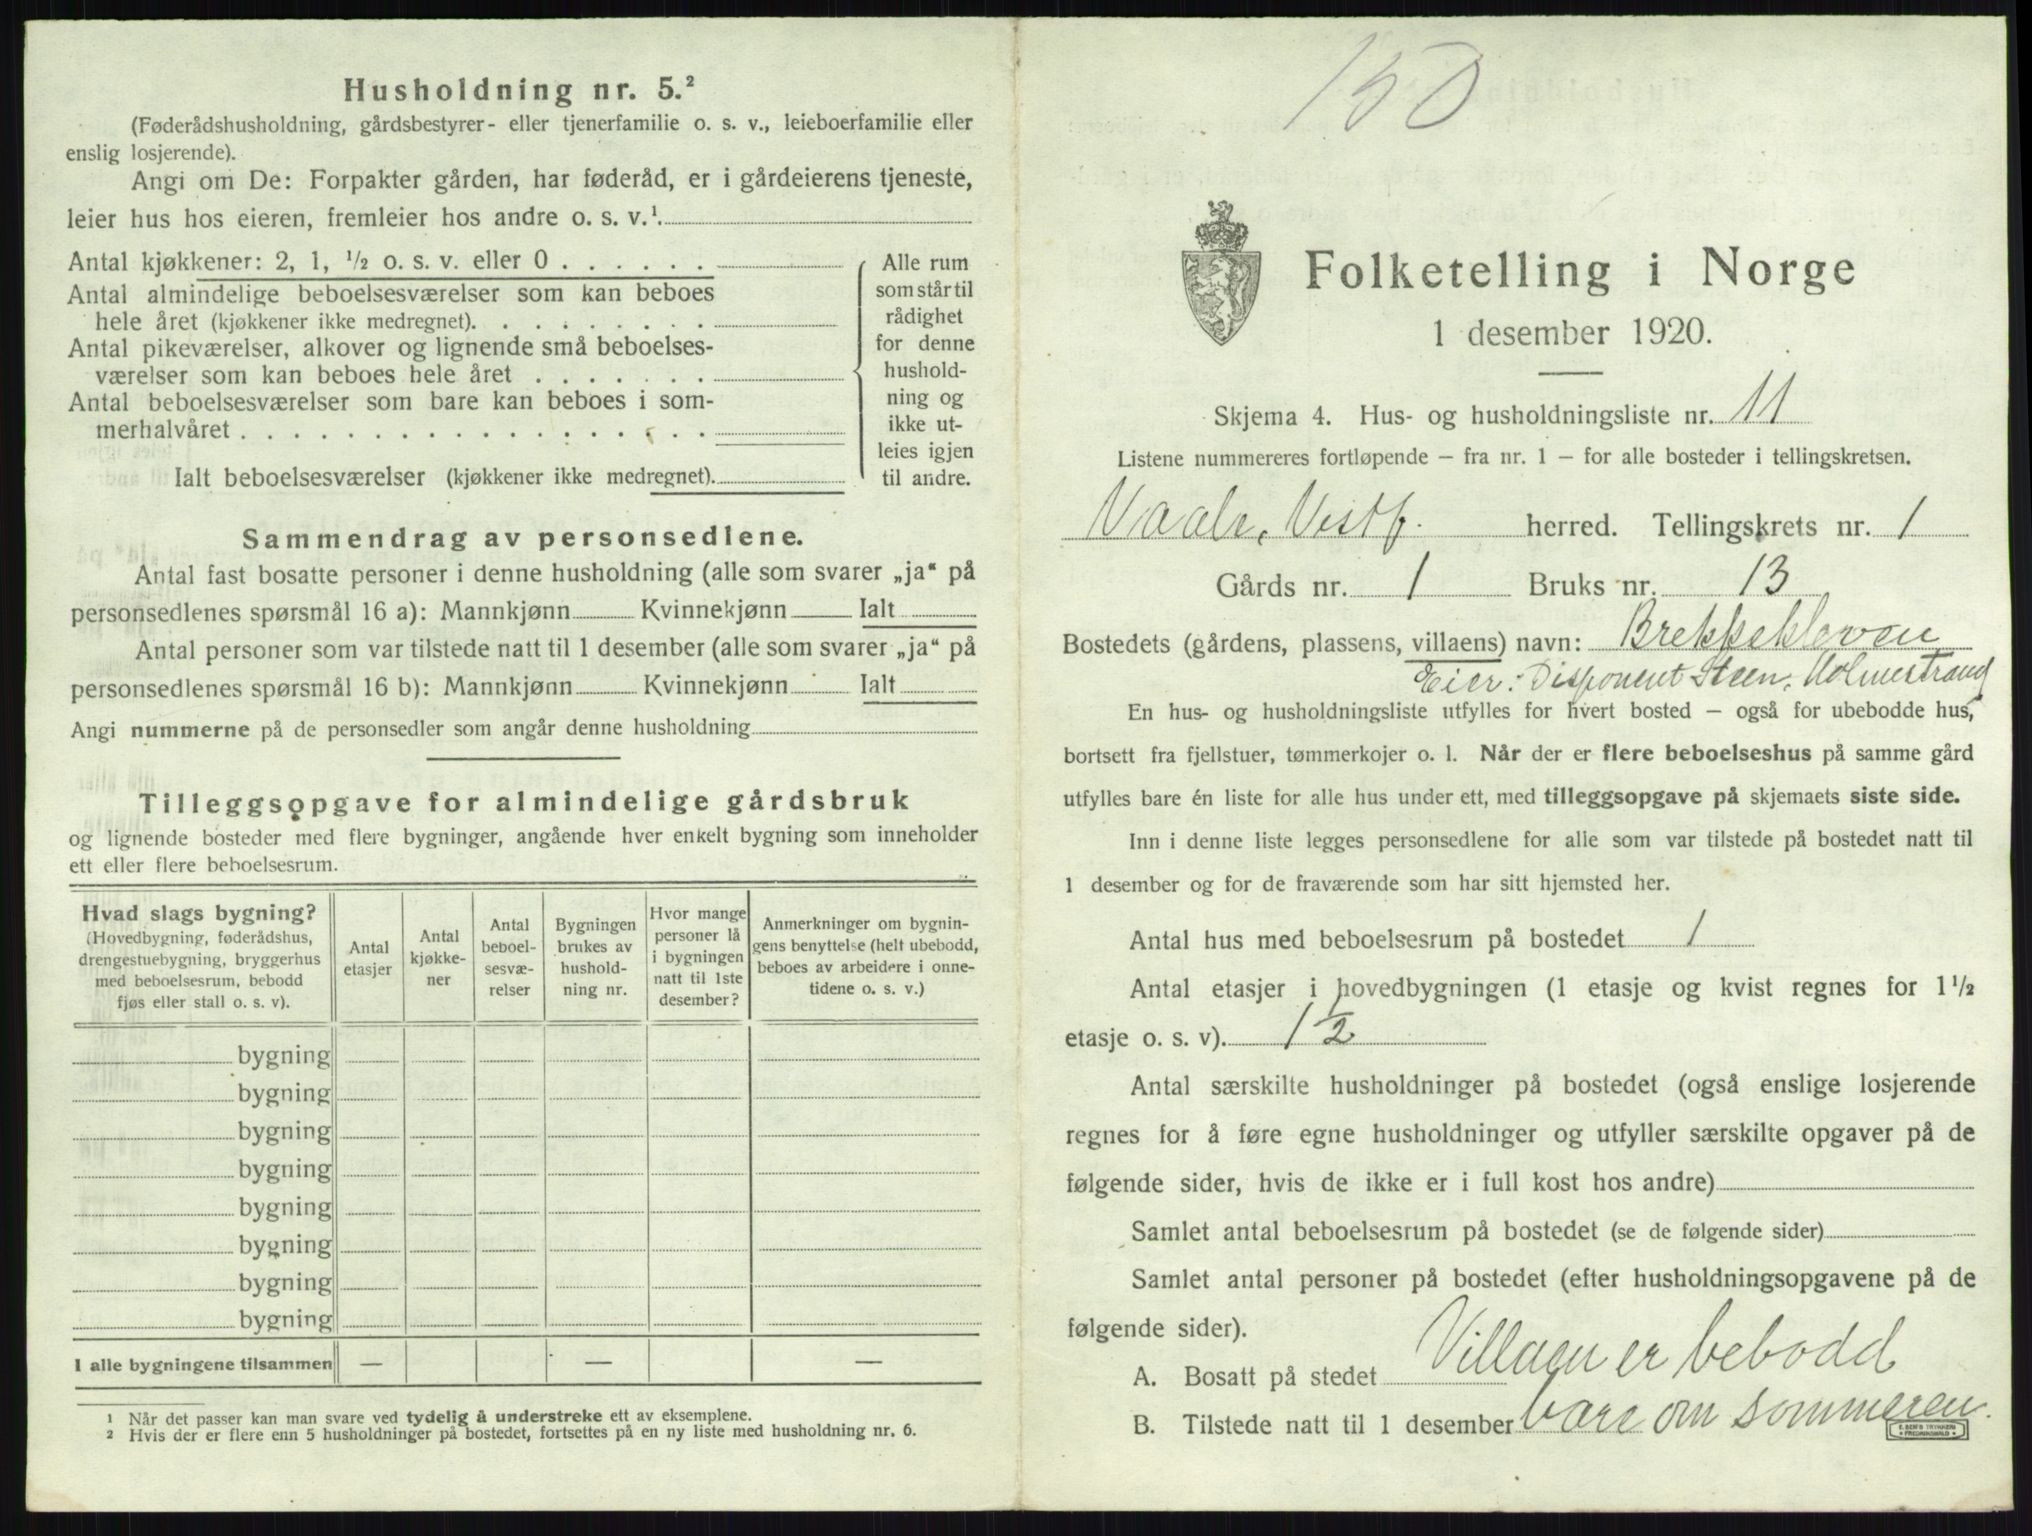 Husholdning nr. 5.²
(Føderådshusholdning, gårdsbestyrer- eller tjenerfamilie o. s. v., leieboerfamilie eller
enslig losjerende).
Angi om De: Forpakter gården, har føderåd, er i gårdeierens tjeneste,
leier hus hos eieren, fremleier hos andre o. s. v.¹.
Antal kjøkkener: 2, 1, ½ o. s. v. eller 0 . . . . . .
Antal almindelige beboelsesværelser som kan beboes
hele året (kjøkkener ikke medregnet). . . . . . . . .
Antal pikeværelser, alkover og lignende små beboelses-
værelser som kan beboes hele året . . . . . . .
Antal beboelsesværelser som bare kan beboes i som-
merhalvåret . . . . . . . . . . . . . . . . . .
Ialt beboelsesværelser (kjøkkener ikke medregnet).
Alle rum
som står til
rådighet
for denne
hushold-
ning og
ikke ut-
leies igjen
til andre.
Sammendrag av personsedlene.
Antal fast bosatte personer i denne husholdning (alle som svarer „ja“ på
personsedlenes spørsmål 16 a): Mannkjønn Kvinnekjønn Ialt
Antal personer som var tilstede natt til 1 desember (alle som svarer „ja“ på
personsedlenes spørsmål 16 b): Mannkjønn Kvinnekjønn Ialt
Angi nummerne på de personsedler som angår denne husholdning
Tilleggsopgave for almindelige gårdsbruk
og lignende bosteder med flere bygninger, angående hver enkelt bygning som inneholder
ett eller flere beboelsesrum.
Hvad slags bygning?
(Hovedbygning, føderådshus,
drengestuebygning, bryggerhus
med beboelsesrum, bebodd
fjøs eller stall o. s. v).
Antal
etasjer
Antal
kjøkke-
ner
Antal
beboel-
sesvæ-
relser
Bygningen
brukes av
hushold-
ning nr.
Hvor mange
personer lå
i bygningen
natt til 1ste
desember?
Anmerkninger om bygnin-
gens benyttelse (helt ubebodd,
beboes av arbeidere i onne-
tidene o. s. v.)
bygning
bygning
bygning
bygning
bygning
bygning
bygning
bygning
I alle bygningene tilsammen — — —
1 Når det passer kan man svare ved tydelig å understreke ett av eksemplene.
2 Hvis der er flere enn 5 husholdninger på bostedet, fortsettes på en ny liste med husholdning nr. 6.
150
Folketelling i Norge
1 desember 1920.
Skjema 4. Hus- og husholdningsliste nr. 11
Listene nummereres fortløpende — fra nr. 1 — for alle bosteder i tellingskretsen.
Vaale, Vestf. herred. Tellingskrets nr. 1
Gårds nr. 1 Bruks nr. 13
Bostedets (gårdens, plassens, villaens) navn: Brekkekleven
Eier: Disponent Steen, Holmestrand
En hus- og husholdningsliste utfylles for hvert bosted — også for ubebodde hus,
bortsett fra fjellstuer, tømmerkojer o. l. Når der er flere beboelseshus på samme gård
utfylles bare én liste for alle hus under ett, med tilleggsopgave på skjemaets siste side.
Inn i denne liste legges personsedlene for alle som var tilstede på bostedet natt til
1 desember og for de fraværende som har sitt hjemsted her.
Antal hus med beboelsesrum på bostedet 1
Antal etasjer i hovedbygningen (1 etasje og kvist regnes for 1½
etasje o. s. v). 1½
Antal særskilte husholdninger på bostedet (også enslige losjerende
regnes for å føre egne husholdninger og utfyller særskilte opgaver på de
følgende sider, hvis de ikke er i full kost hos andre)
Samlet antal beboelsesrum på bostedet (se de følgende sider)
Samlet antal personer på bostedet (efter husholdningsopgavene på de
følgende sider).
A. Bosatt på stedet Villaen er bebodd
B. Tilstede natt til 1 desember bare om sommeren.